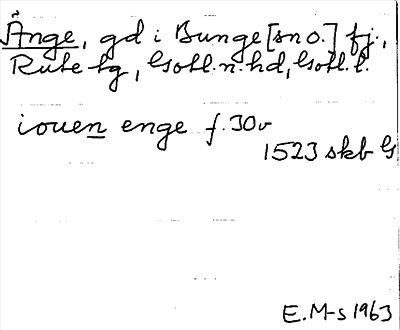 Änge, gd i Bunge [sn o.] fj.,
Rute tg, Gotl. n. hd, Gotl. l.
iouen enge f. 30v
1523 skb G
E. M-s 1963